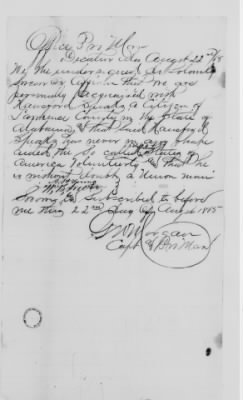 Office Pro Mar
Decatur Ala August 22nd /65
We the undersigned do Solemnly
Swear & affirm that we are
personally acquainted with
Hansford a Citizen of
Lawrence County in the State of
Alabama & that said Hansford
has never in any shape
aided the so called States of
America Voluntarily & that he
is without doubt a Union man
Sworn to & Subscribed to before
me this 22nd day of Augt 1865
Morgan
Capt & Pro Mar